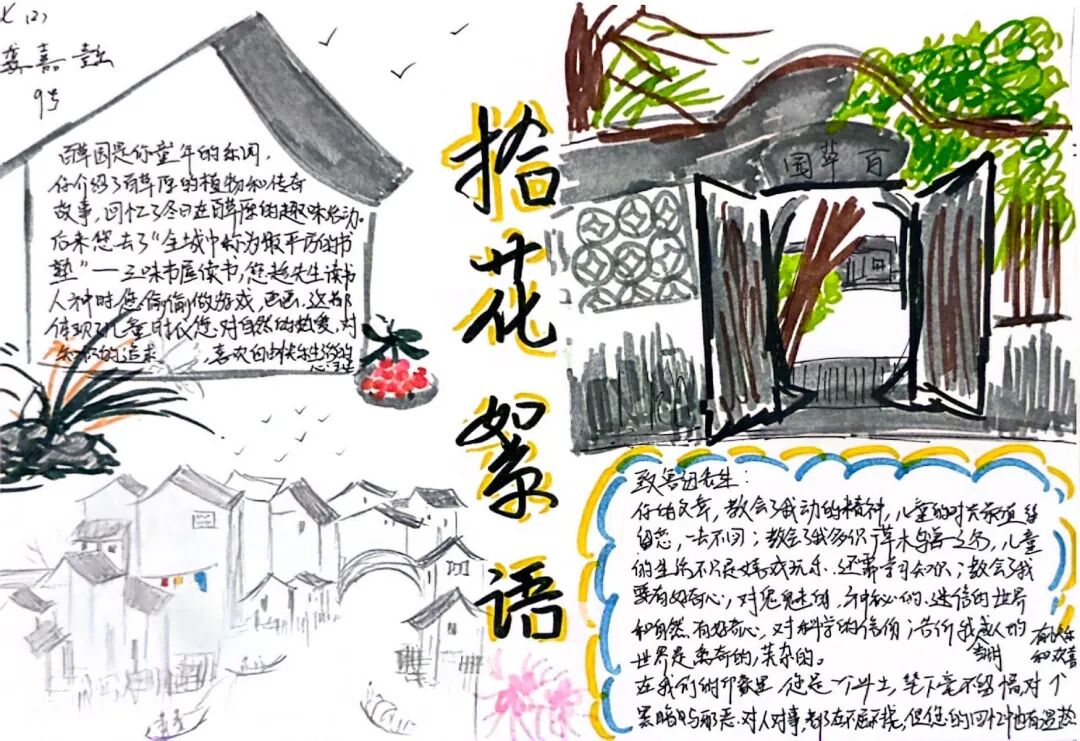 七(2)
龚嘉懿
9号
百草园是你童年的乐园,
你介绍了百草原的植物和传奇
故事,回忆了冬日在百草原的趣味活动。
后来您去了“全城中称为最严厉的书
塾”——三味书屋读书,您趁先生读书
入神时,您偷偷做游戏,画画,这都
体现了儿童时代您对自然的热爱,对
知识的追求,喜欢自由快乐生活的
心理
拾花絮语
百草园
致鲁迅先生:
你的文章,教会了我动的精神,儿童的时
留恋,一去不回;教会了我多识草木鸟兽之名,儿童
的生活不只是嬉戏玩乐,还需学习知识;教会了我
要有好奇心,对鬼鬼怪的,神秘的、迷信的世界
和自然,有好奇心,对科学的信仰;告诉我成人的
世界是离奇的,芜杂的。
当时
有快乐
和欢喜
在我们的印象里,您是一个斗士,笔下毫不留情,对个
黑暗与邪恶,对人对事,都在不屈不挠,但您的回忆中也有温热